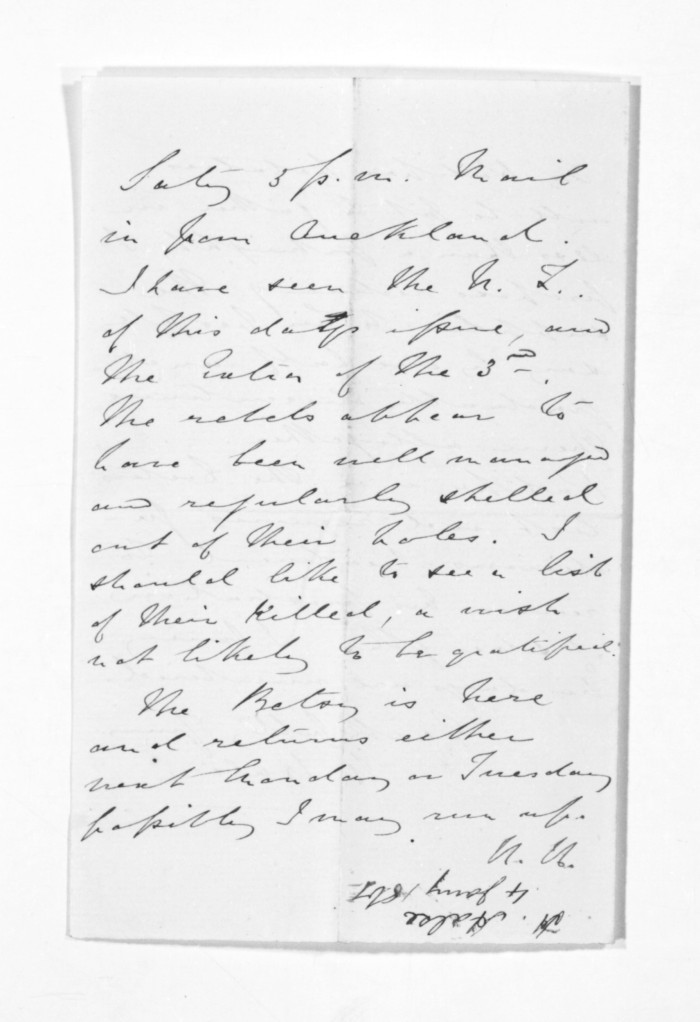 Saty 5 p.m. Mail
in from Auckland.
I have seen the N. Z.
of this day's issue, and
the Extra of the 3rd.
The rebels appear to
have been well managed
and regularly shelled
out of their holes. I
should like to see a list
of their killed, a wish
not likely to be gratified.
The Betsy is here
and returns either
next Monday or Tuesday
possibly I may run up.
H. H.
4 Jany 1861
H. Halse